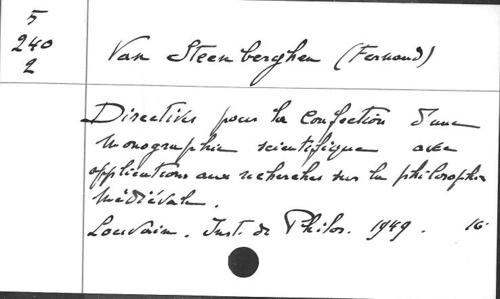 5
240
2
Van Steenberghen (Fernand)
Directives pour la confection d'une
monographie scientifique avec
applications aux recherches sur la philosophie
médiévale.
Louvain. Inst. de Philos. 1949. 16·